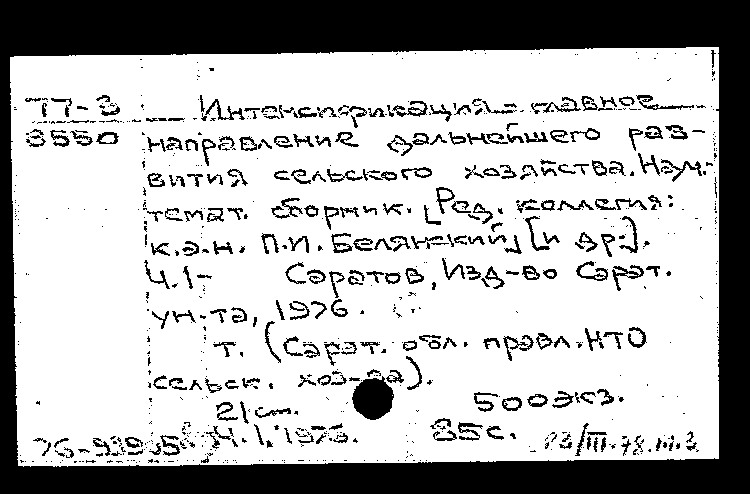 77-3 Интенсификация - главное
8550 направление дальнейшего раз-
вития сельского хозяйства. Науч.-
темат. сборник. [Ред. коллегия:
к.э.н. П.И. Белянский] [и др.].
Ч.1- Саратов, Изд-во Сарат.
ун-та, 1976.
т. (Сарат. обл. правл. НТО
сельск. хоз-ва).
21 ст. 500 экз.
Ч.1. 1976. 85с.